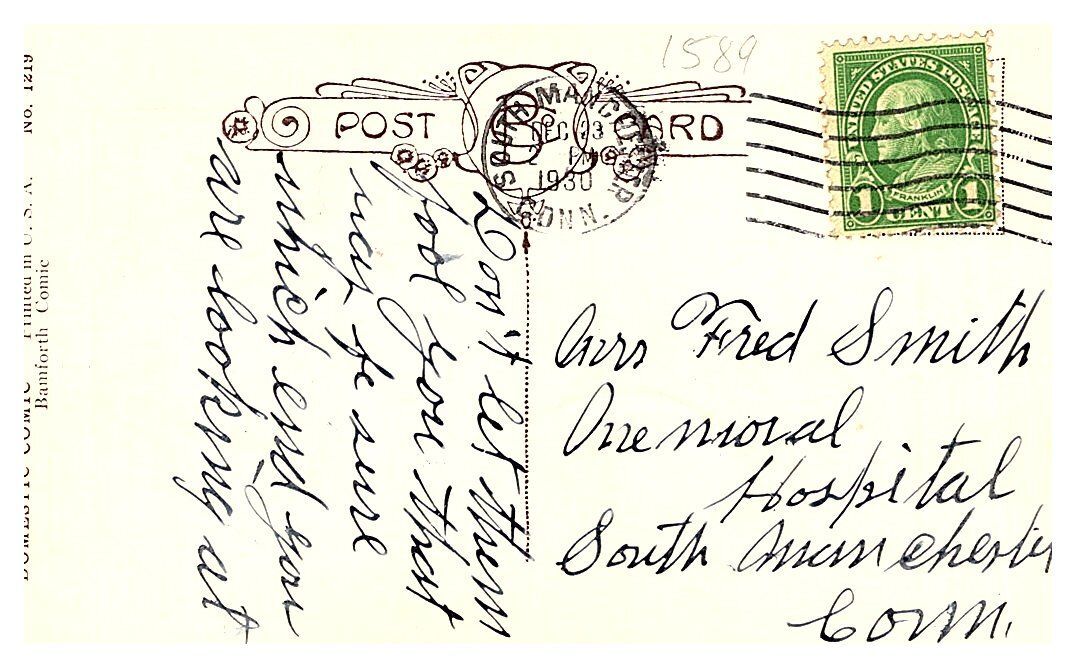 1589
POST CARD
SOUTH MANCHESTER
DEC 23
2 PM
1930
CONN.
UNITED STATES POSTAGE
FRANKLIN
1 CENT 1
Don't let them
fool you that
may be sure
which end you
are looking at
Mrs Fred Smith
Memorial
Hospital
South Manchester
Conn.
DOMESTIC COMIC Printed in U. S. A. No. 1219
Bamforth Comic